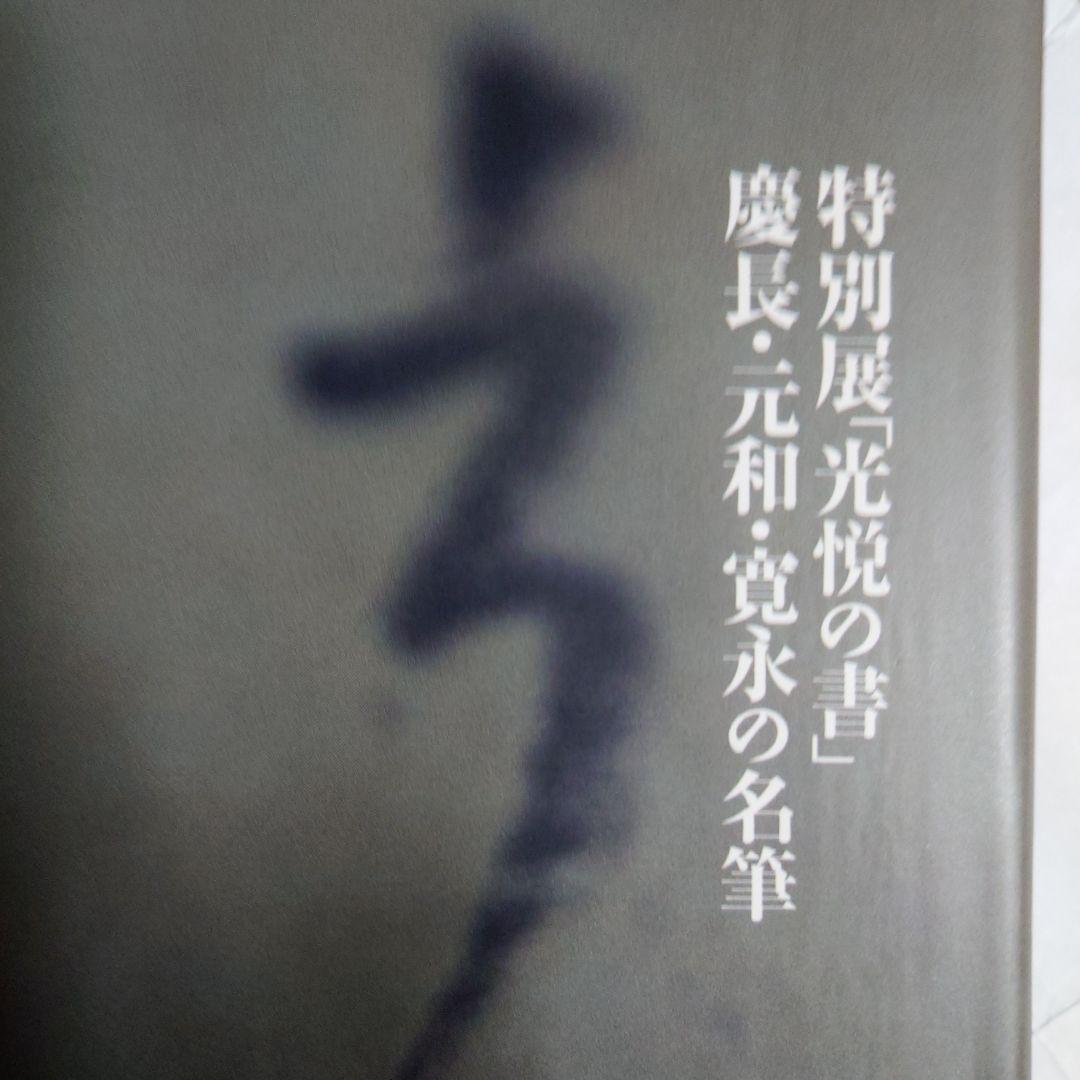 特別展「光悦の書」
慶長・元和・寛永の名筆